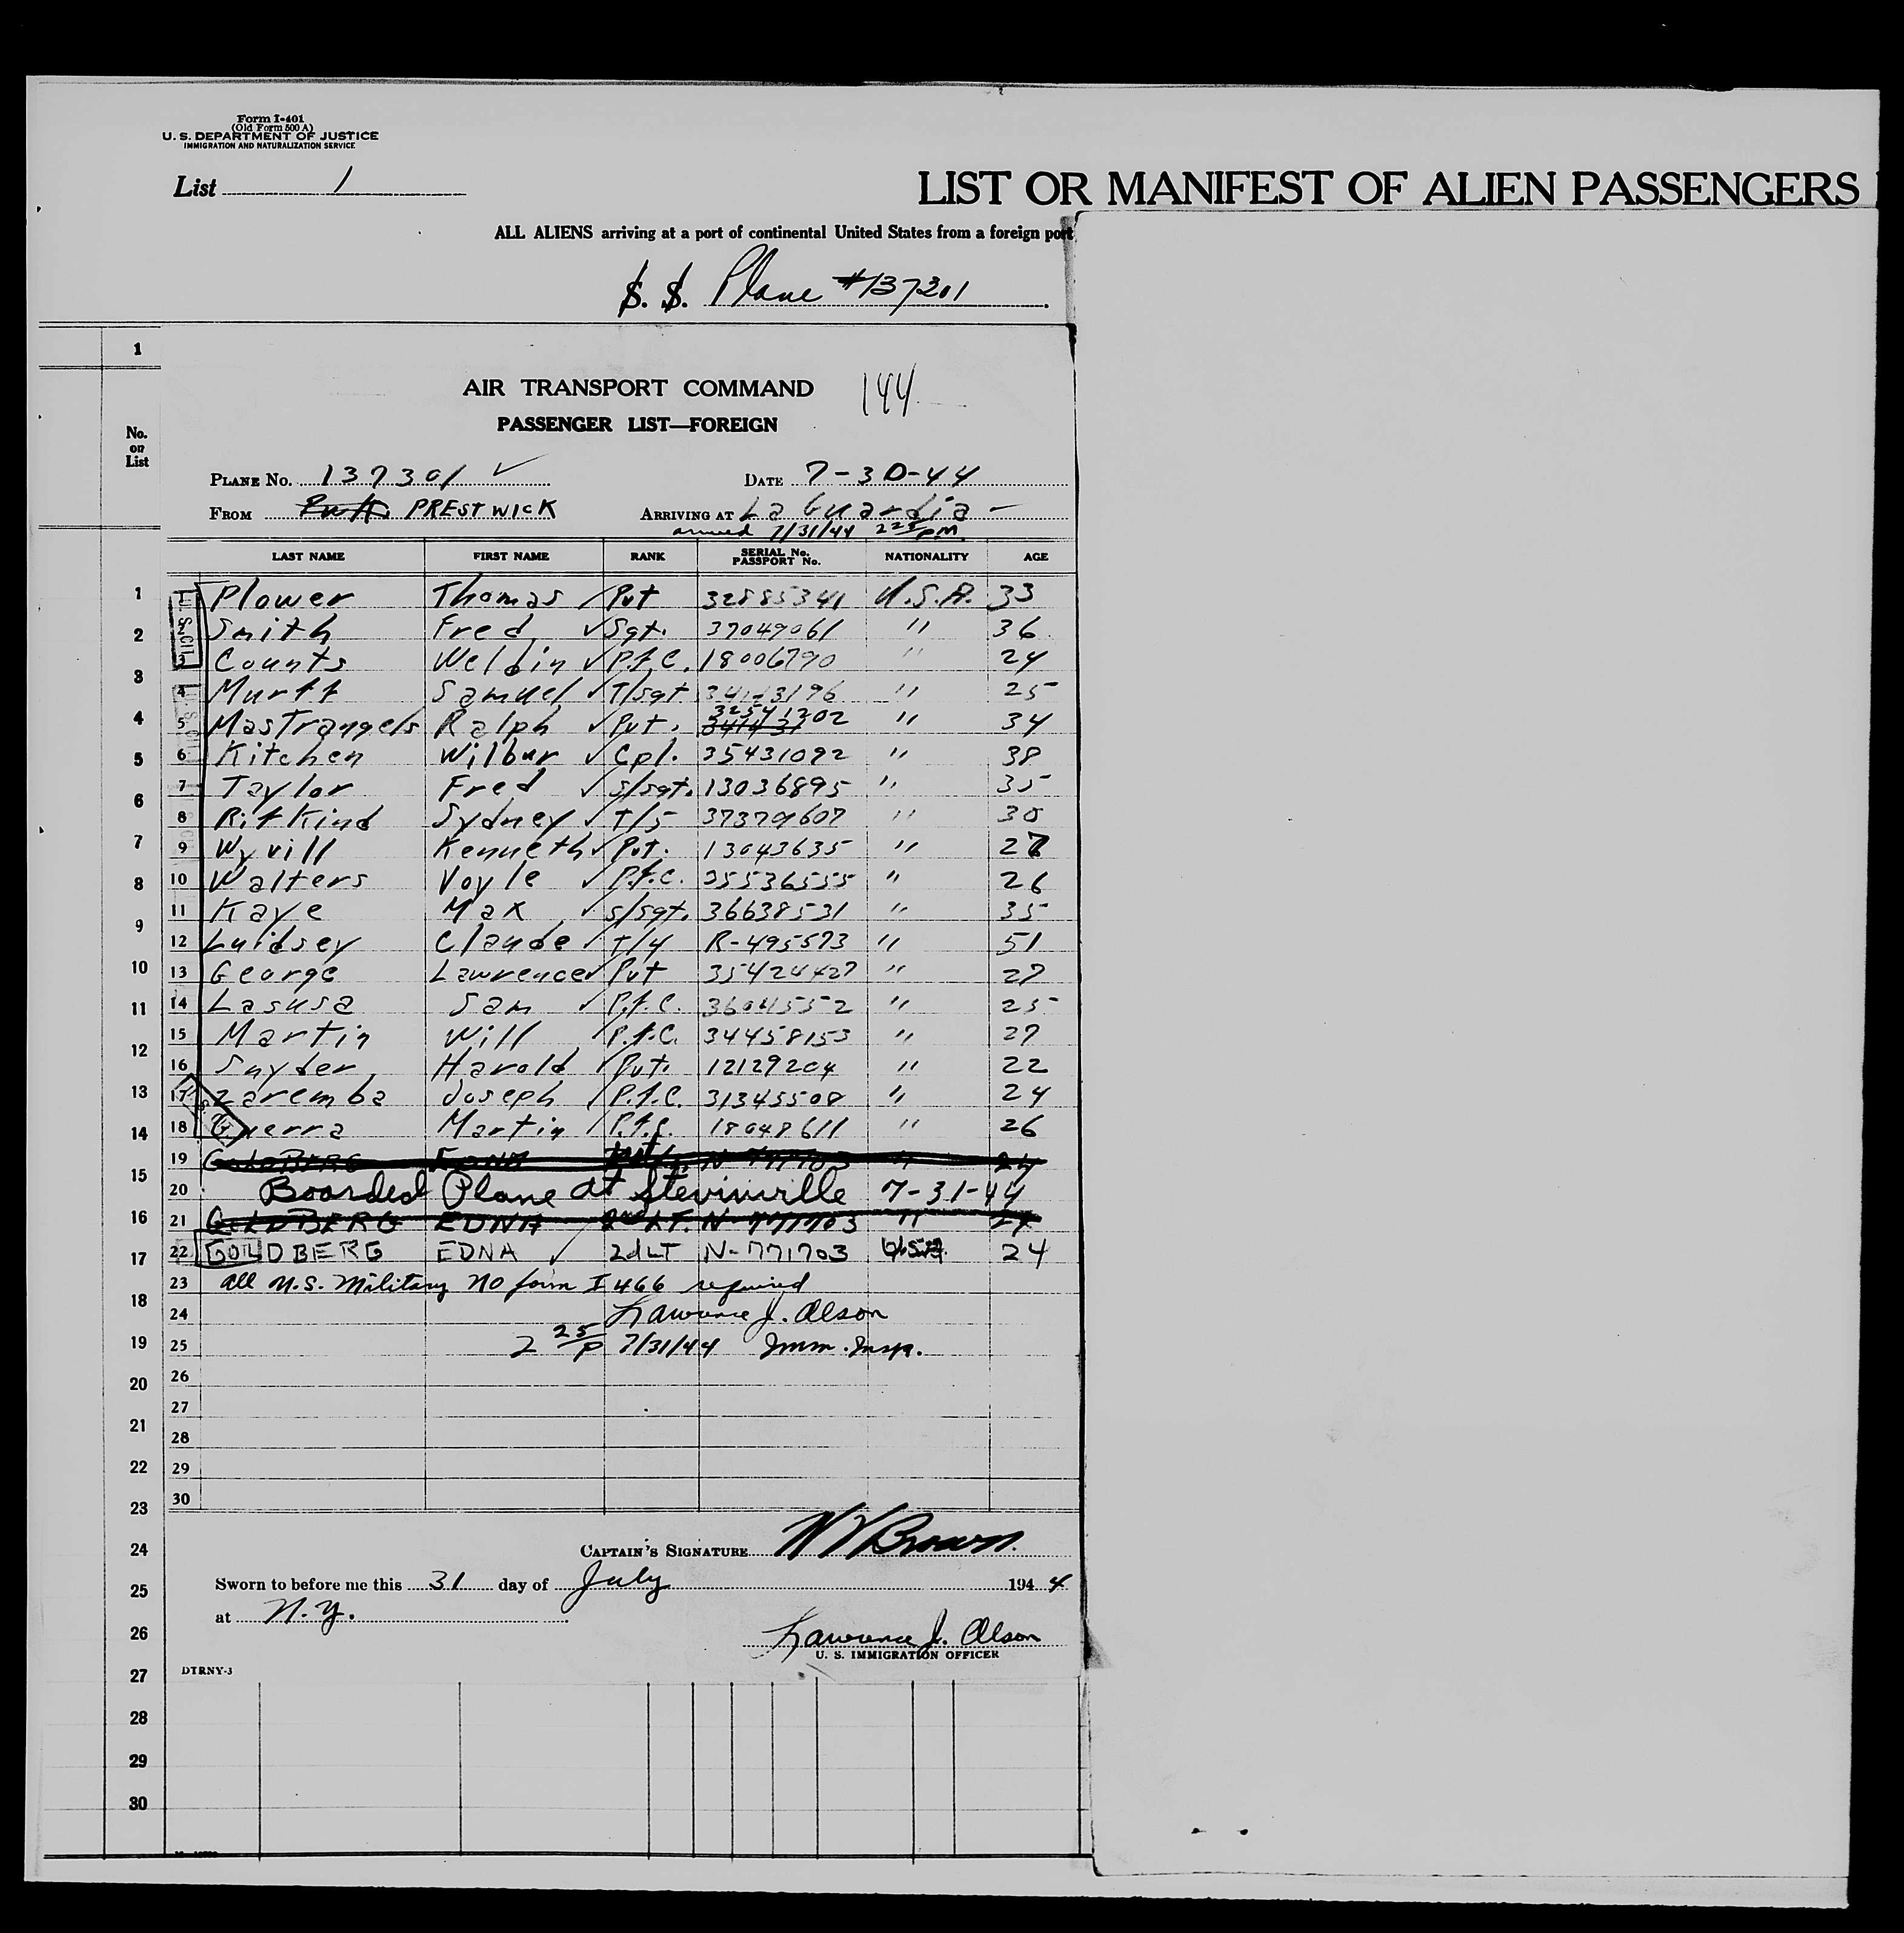 Form I-401
(Old Form 500 A)
U. S. DEPARTMENT OF JUSTICE
IMMIGRATION AND NATURALIZATION SERVICE
List 1
LIST OR MANIFEST OF ALIEN PASSENGERS
ALL ALIENS arriving at a port of continental United States from a foreign port
S. S. Plane #137301
1
No. on List
AIR TRANSPORT COMMAND 144
PASSENGER LIST—FOREIGN
PLANE No. 137301 ✓ DATE 7-30-44
FROM PRESTWICK ARRIVING AT La Guardia
arrived 7/31/44 2 25 PM
LAST NAME FIRST NAME RANK SERIAL No. PASSPORT No. NATIONALITY AGE
1 Plower Thomas ✓ Pvt 32885341 U.S.A. 33
2 Smith Fred ✓ Sgt. 37049061 " 36
3 Counts Weldin ✓ P.f.C. 18006790 " 24
4 Murff Samuel ✓ T/Sgt " 25
5 Mastrangels Ralph ✓ Pvt. 32541202 " 34
6 Kitchen Wilbur ✓ Cpl. 35431092 " 38
7 Taylor Fred ✓ S/Sgt. 13036895 " 35
8 Rifkind Sydney ✓ T/5 37379607 " 30
9 Wyvill Kenneth ✓ Pvt. 13043635 " 27
10 Walters Voyle ✓ P.f.C. 35536555 " 26
11 Kaye Max ✓ S/Sgt. 36638531 " 35
12 Luidsey Claude ✓ T/4 R-495573 " 51
13 George Lawrence ✓ Pvt 35424427 " 27
14 Lasusa Sam ✓ P.f.C. 36045552 " 25
15 Martin Will ✓ P.f.C. 34458153 " 27
16 Snyder Harold ✓ Pvt. 12129204 " 22
17 Zaremba Joseph ✓ P.f.C. 31345508 " 24
18 Guerra Martin ✓ P.f.C. 18048611 " 26
19 GOLDBERG EDNA N-771703 " 24
20 Boarded Plane at Stevinville 7-31-44
21 GOLDBERG EDNA 2nd LT. N-771703 " 24
22 GOLDBERG EDNA ✓ 2d LT N-771703 24
23 all U.S. Military no form I 466 required
24 Lawrence J. Olson
25 2 25 P 7/31/44 Imm. Insp.
26
27
28
29
30
CAPTAIN'S SIGNATURE Brown
Sworn to before me this 31 day of July 1944
at N.Y.
Lawrence J. Olson
U. S. IMMIGRATION OFFICER
DTRNY-3
1
2
3
4
5
6
7
8
9
10
11
12
13
14
15
16
17
18
19
20
21
22
23
24
25
26
27
28
29
30